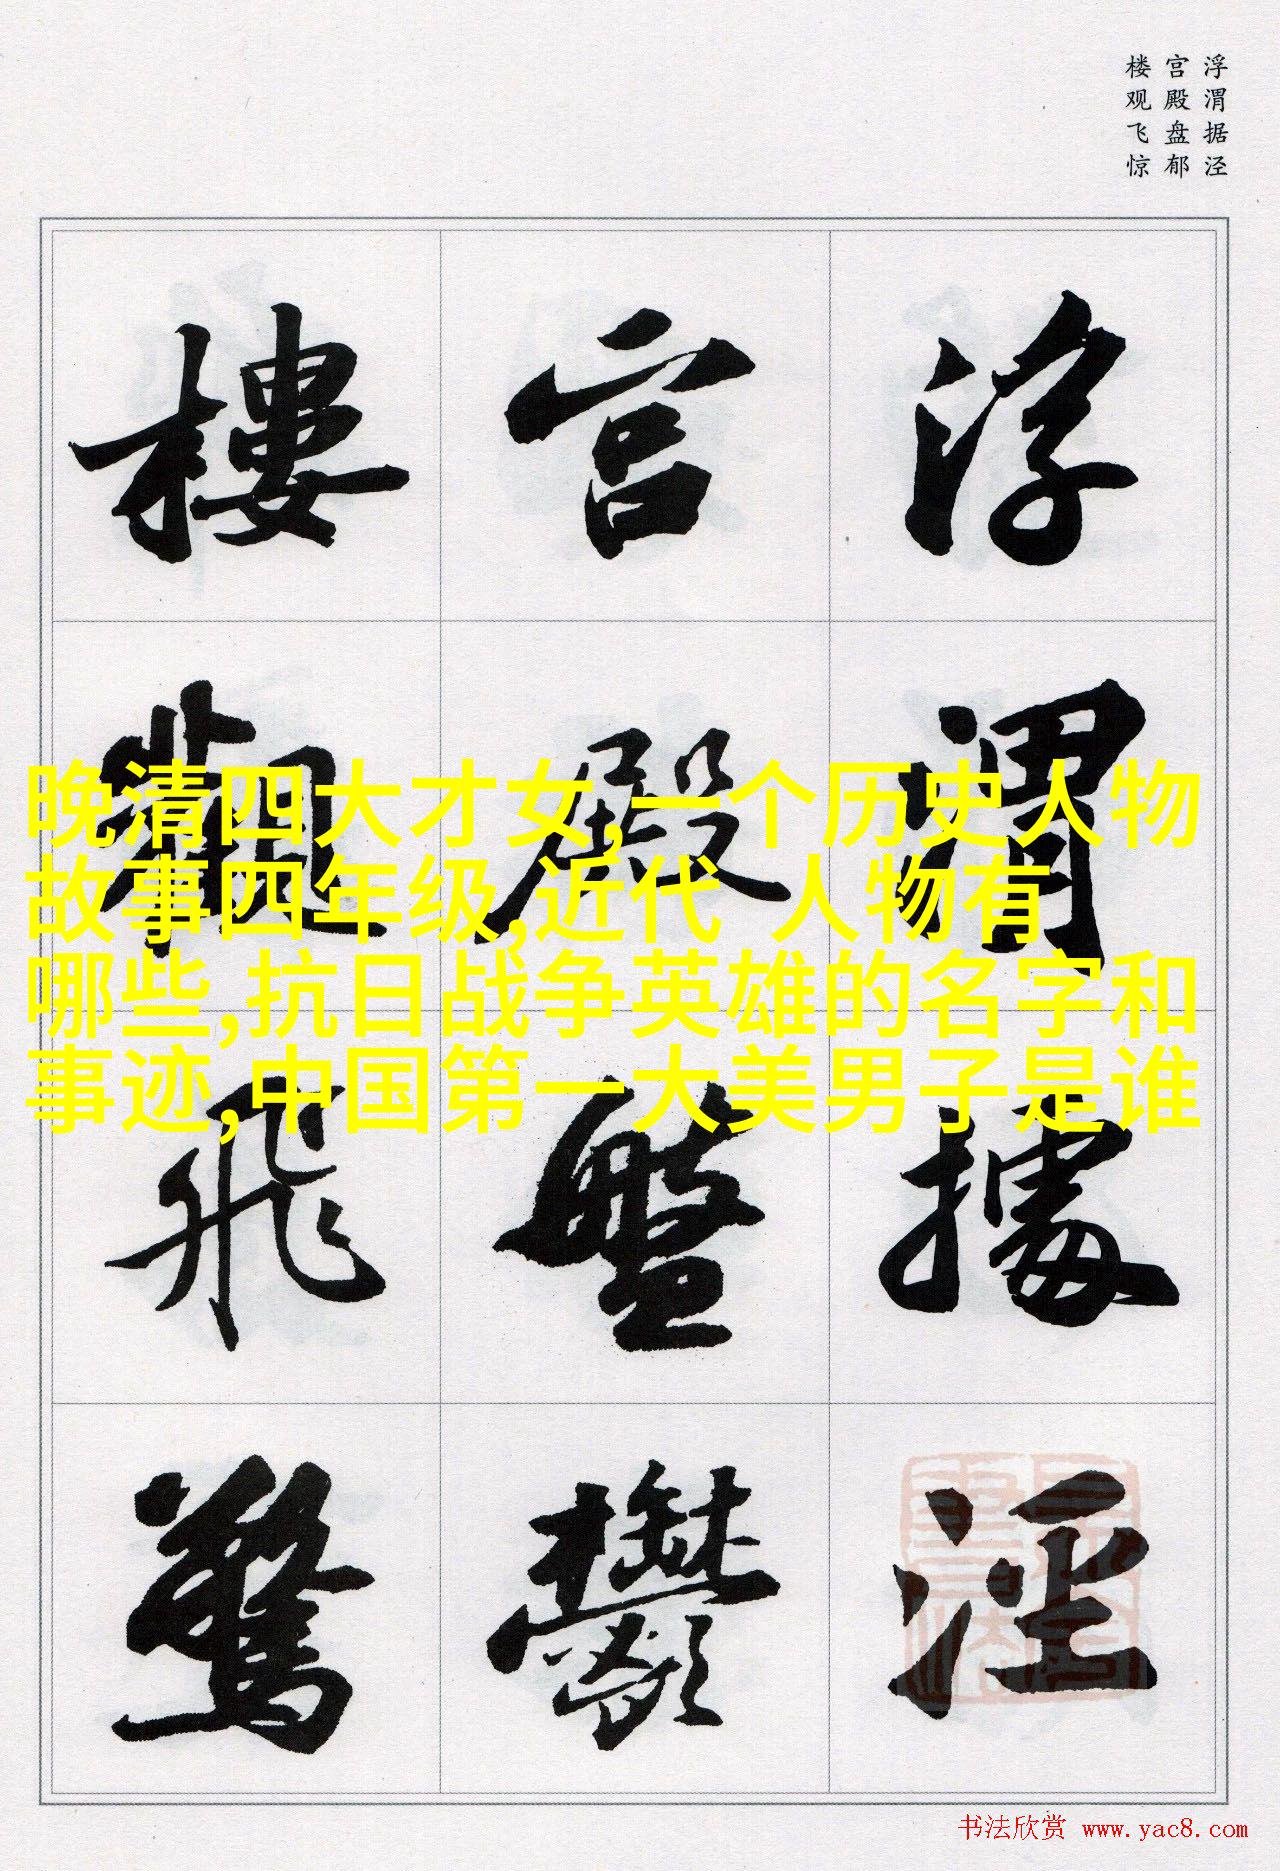 浮渭据泾
宫殿盘郁
楼观飞惊
浮渭據泾
宫殿盤鬱
樓觀飛驚
晚清四大才女,一个历史人物
故事四年级,近代 人物有
哪些,抗日战争英雄的名字和
事迹,中国第一大美男子是谁
书法欣赏 www.yac8.com